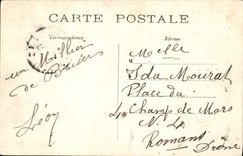 CARTE POSTALE
Correspondance
Adresse
un Million
de Baisers
Léon
Melle
Ida Mourat
Place du
Champ de Mars
N. 4
Romans
Drôme